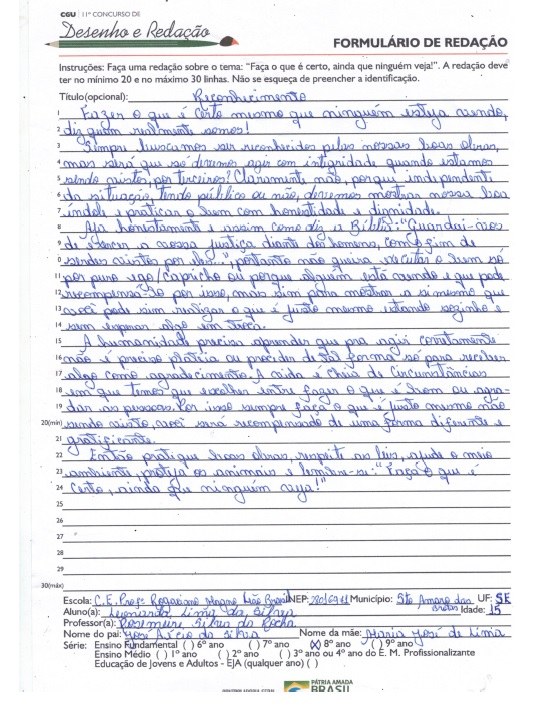 CGU | 11º CONCURSO DE
Desenho e Redação
FORMULÁRIO DE REDAÇÃO
Instruções: Faça uma redação sobre o tema: "Faça o que é certo, ainda que ninguém veja!". A redação deve
ter no mínimo 20 e no máximo 30 linhas. Não se esqueça de preencher a identificação.
Título(opcional): Reconhecimento
1 Fazer o que é certo mesmo que ninguém esteja vendo,
2 diz quem realmente somos!
3 Sempre buscamos ser reconhecidos pelas nossas boas obras,
4 mas será que só devemos agir com integridade quando estamos
5 sendo vistos, por terceiros? Claramente não, porque independente
6 da situação, tendo público ou não, devemos mostrar nossa boa
7 índole e praticar o bem com honestidade e dignidade.
8 Aja honestamente e assim como diz a Bíblia: "Guardai-vos
9 de exercer a vossa justiça diante dos homens, com o fim de
10 serdes vistos por eles", portanto não queira executar o bem só
11 por puro ego/capricho ou porque alguém está vendo e que pode
12 recompensá-lo por isso, mas sim para mostrar a si mesmo que
13 você pode sim realizar o que é justo mesmo estando sozinho e
14 sem esperar algo em troca.
15 A humanidade precisa aprender que pra agir corretamente
16 não é preciso plateia ou proceder de tal forma só para receber
17 algo como agradecimento. A vida é cheia de circunstâncias
18 em que temos que escolher entre fazer o que é bem ou agra-
19 dar as pessoas. Por isso sempre faça o que é justo mesmo não
20(min) sendo visto, você será recompensado de uma forma diferente e
21 gratificante.
22 Então pratique boas obras, respeite as leis, ajude o meio
23 ambiente, proteja os animais e lembre-se: "Faça o que é
24 certo, ainda que ninguém veja!"
25
26
27
28
29
30(máx)
Escola: C.E. Profº Rogaciano Magno Leão Brasil INEP: Município: Sto Amaro das Brotas UF: SE
Aluno(a): Leonardo Lima da Silva Idade: 15
Professor(a): Rosemeire Silva da Rocha
Nome do pai: José Aécio da Silva Nome da mãe: Maria José de Lima
Série: Ensino Fundamental ( ) 6º ano ( ) 7º ano (X) 8º ano ( ) 9º ano
Ensino Médio ( ) 1º ano ( ) 2º ano ( ) 3º ano ou 4º ano do E. M. Profissionalizante
Educação de Jovens e Adultos - EJA (qualquer ano) ( )
PÁTRIA AMADA
BRASIL